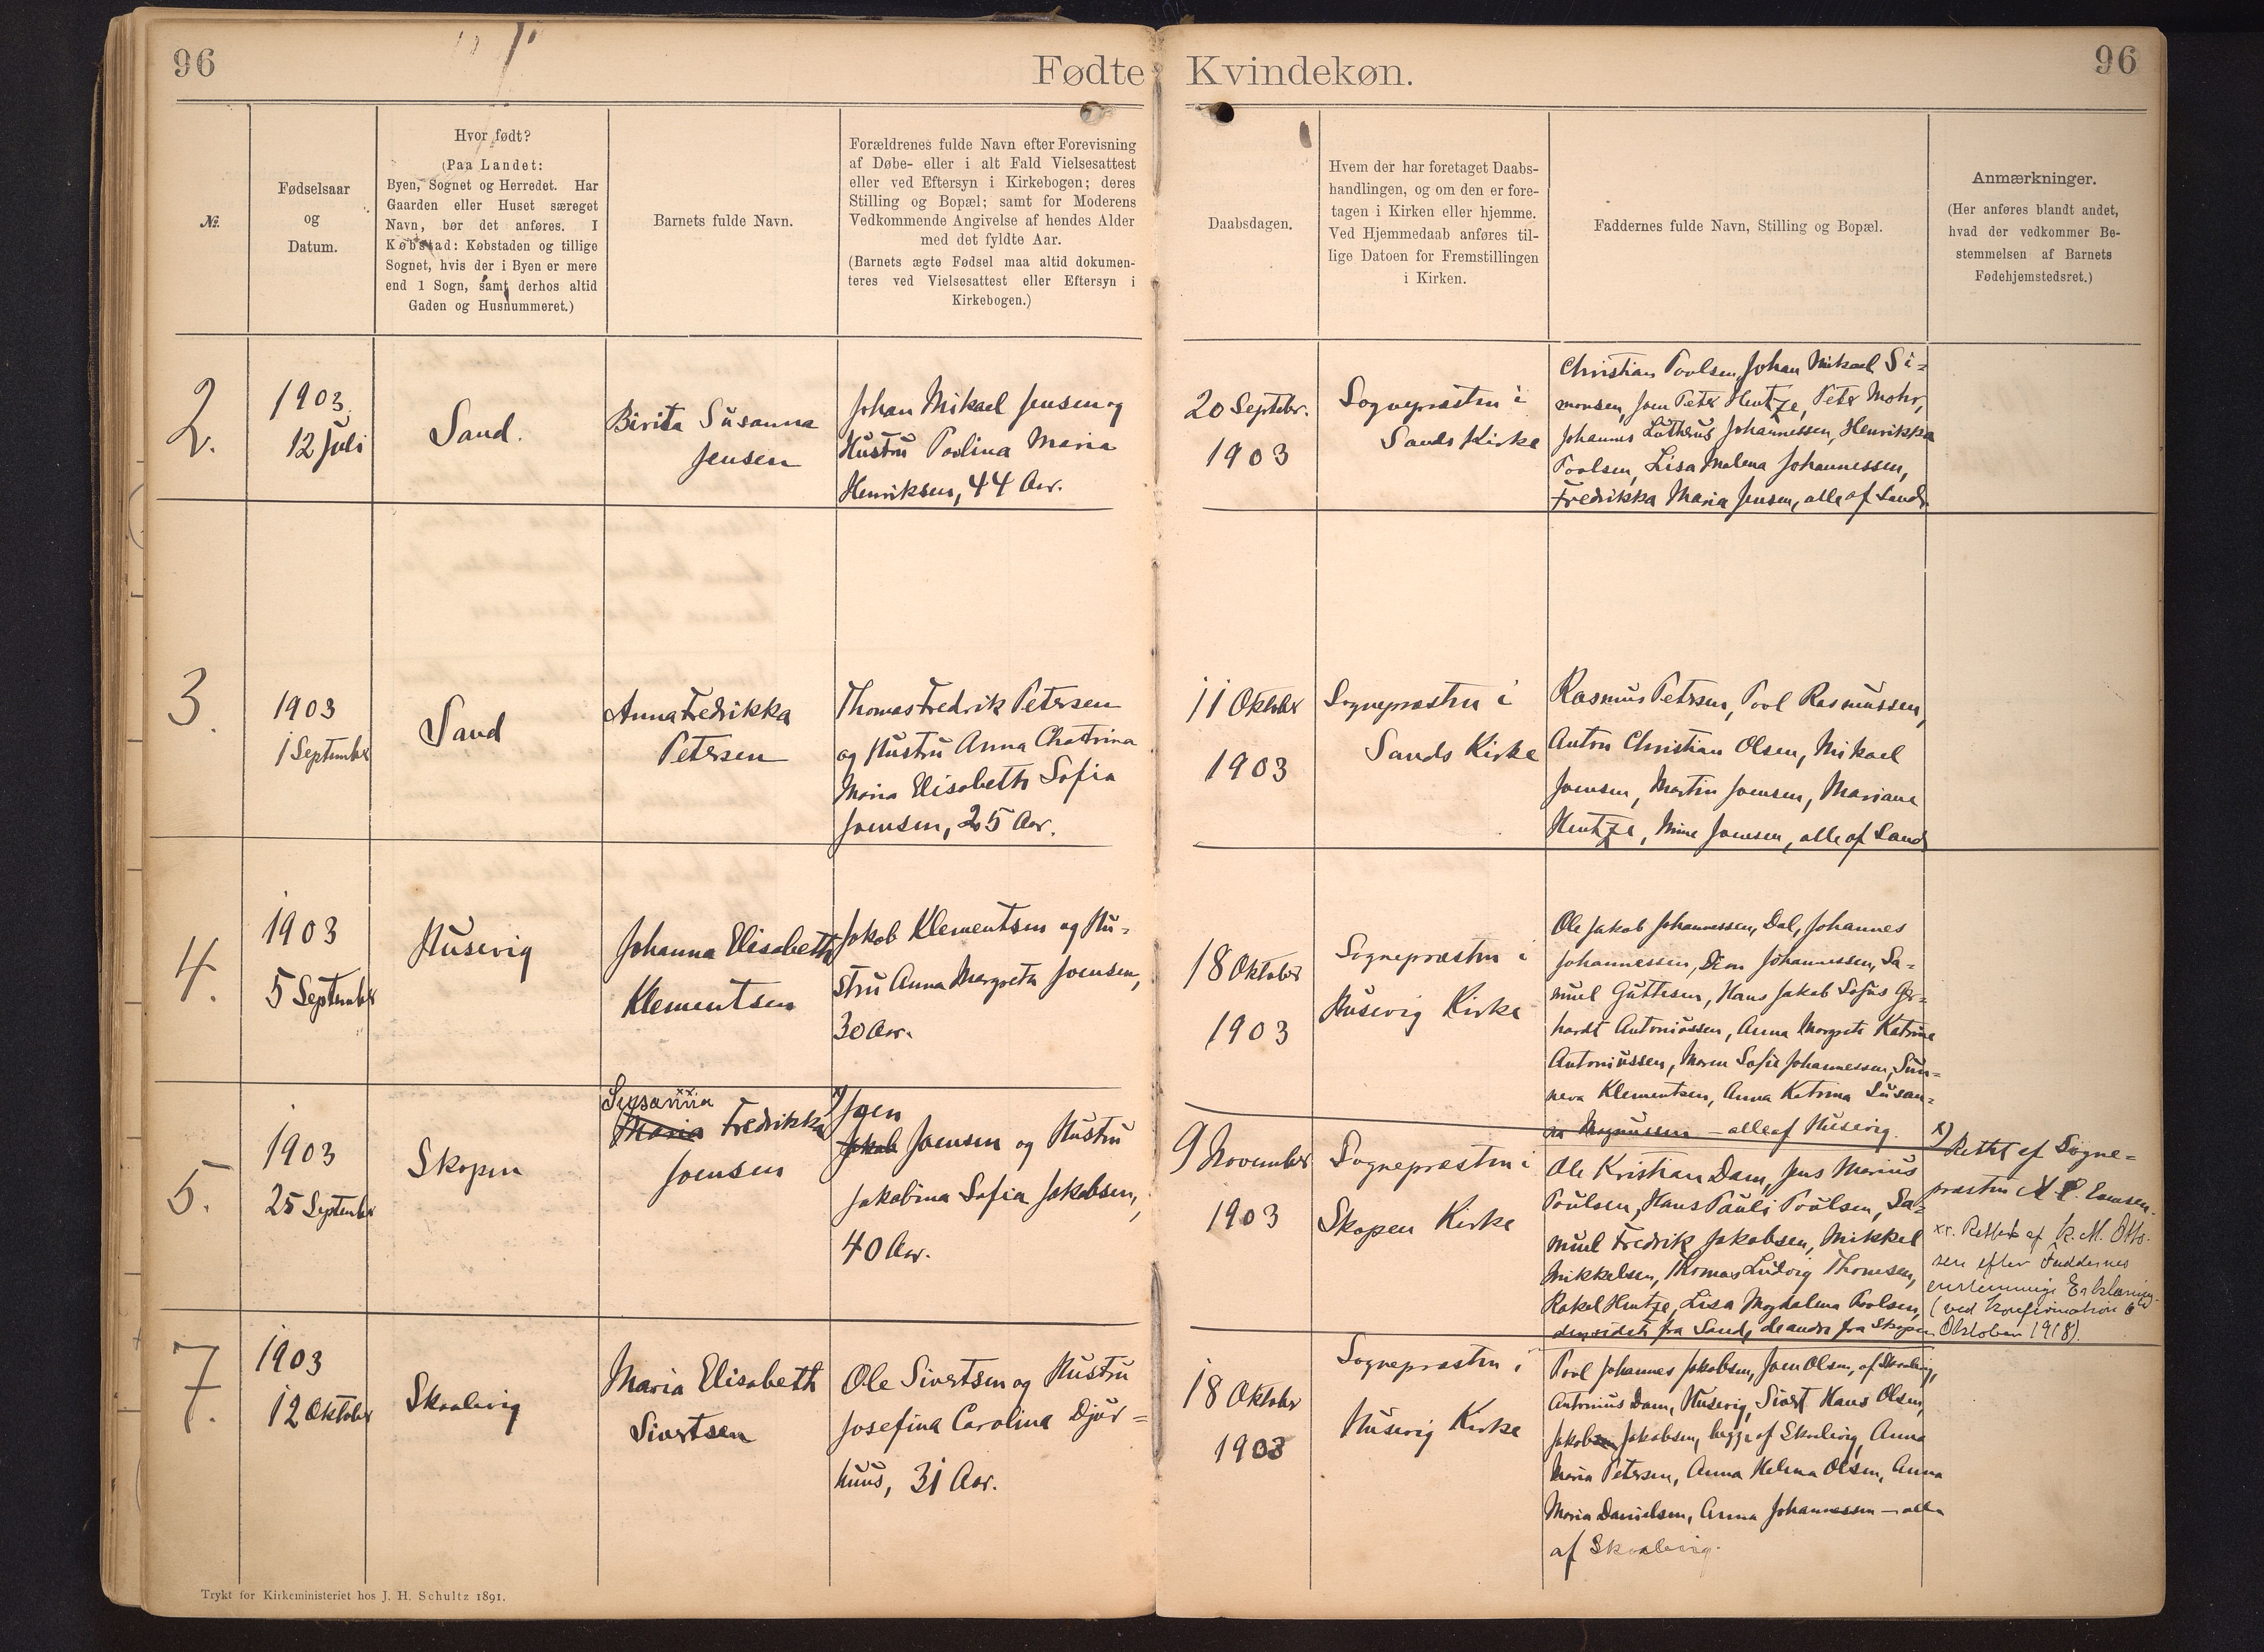 96
Fødte
Kvindekøn.
96
№.
Fødselsaar
og
Datum.
Hvor født?
(Paa Landet:
Byen, Sognet og Herredet. Har
Gaarden eller Huset særeget
Navn, bør det anføres. I
Købstad: Købstaden og tillige
Sognet, hvis der i Byen er mere
end 1 Sogn, samt derhos altid
Gaden og Husnummeret.)
Barnets fulde Navn.
Forældrenes fulde Navn efter Forevisning
af Døbe- eller i alt Fald Vielsesattest
eller ved Eftersyn i Kirkebogen; deres
Stilling og Bopæl; samt for Moderens
Vedkommende Angivelse af hendes Alder
med det fyldte Aar.
(Barnets ægte Fødsel maa altid dokumen-
teres ved Vielsesattest eller Eftersyn i
Kirkebogen.)
Daabsdagen.
Hvem der har foretaget Daabs-
handlingen, og om den er fore-
tagen i Kirken eller hjemme.
Ved Hjemmedaab anføres til-
lige Datoen for Fremstillingen
i Kirken.
Faddernes fulde Navn, Stilling og Bopæl.
Anmærkninger.
(Her anføres blandt andet,
hvad der vedkommer Be-
stemmelsen af Barnets
Fødehjemstedsret.)
2.
1903
12 Juli
Sand.
Birita Susanna
Jensen
Johan Mikael Jensen og
Hustru Poulina Maria
Henriksen, 44 Aar.
20 Septebr.
1903
Sognepræsten i
Sands Kirke
Christian Poulsen, Johan Mikael Si=
monsen, Joen Peter Hentze, Peter Mohr,
Johannes Lutherus Johannessen, Henrikka
Poulsen, Lisa Malena Johannessen,
Fredrikka Maria Jensen, alle af Sand
3.
1903
1 September
Sand
Anna Fredrikka
Petersen
Thomas Fredrik Petersen
og Hustru Anna Chatrina
Maria Elisabeth Sofia
Joensen, 25 Aar.
11 Oktober
1903
Sognepræsten i
Sands Kirke
Rasmus Petersen, Poul Rasmussen,
Anton Christian Olsen, Mikael
Joensen, Martin Joensen, Mariane
Hentze, Mine Joensen, alle af Sand
4.
1903
5 September
Husevig
Johanna Elisabeth
Klementsen
Jakob Klementsen og Hu-
stru Anna Margreta Joensen,
30 Aar.
18 Oktober
1903
Sognepræsten i
Husevig Kirke
Ole Jakob Johannessen, Dal, Johannes
Johannessen, Johannessen, Sa=
muel Guttesen, Hans Jakob Sofus Ger=
hardt Antoniussen, Anna Margrete Katrine
Antoniussen, Maren Sofie Johannessen, Sun=
neva Klementsen, Anna Katrina Susan=
na Magnussen – alle af Husevig.
5.
1903
25 September
Skopen
Susanna xx
Maria Fredrikka
Joensen
x) Joen
Jakob Joensen og Hustru
Jakobina Sofia Jakobsen,
40 Aar.
9 November
1903
Sognepræsten i
Skopen Kirke
Ole Kristian Dam, Jens Marius
Poulsen, Hans Pauli Poulsen, Sa=
muel Fredrik Jakobsen, Mikkel
Mikkelsen, Thomas Ludvig Thomsen,
Rakel Hentze, Lisa Magdalena Poulsen,
den sidste fra Sand, de andre fra Skopen
x) Rettet af Sogne=
præsten
xx. Rettet af K. M. Otto-
sen efter Faddernes
enstemmige Erklæring
(ved Konfirmation 6
Oktober 1918).
7.
1903
12 Oktober
Skaalevig
Maria Elisabeth
Sivertsen
Ole Sivertsen og Hustru
Josefina Carolina Djur=
huus, 31 Aar.
18 Oktober
1903
Sognepræsten i
Husevig Kirke
Poul Johannes Jakobsen, Joen Olsen, af Skaalevig,
Antonius Dam, Husevig, Sivert Hans Olsen,
Jakobsen Jakobsen, begge af Skaalevig, Anna
Maria Petersen, Anna Helena Olsen, Anna
Maria Danielsen, Anna Johannessen – alle
af Skaalevig.
Trykt for Kirkeministeriet hos J. H. Schultz 1891.